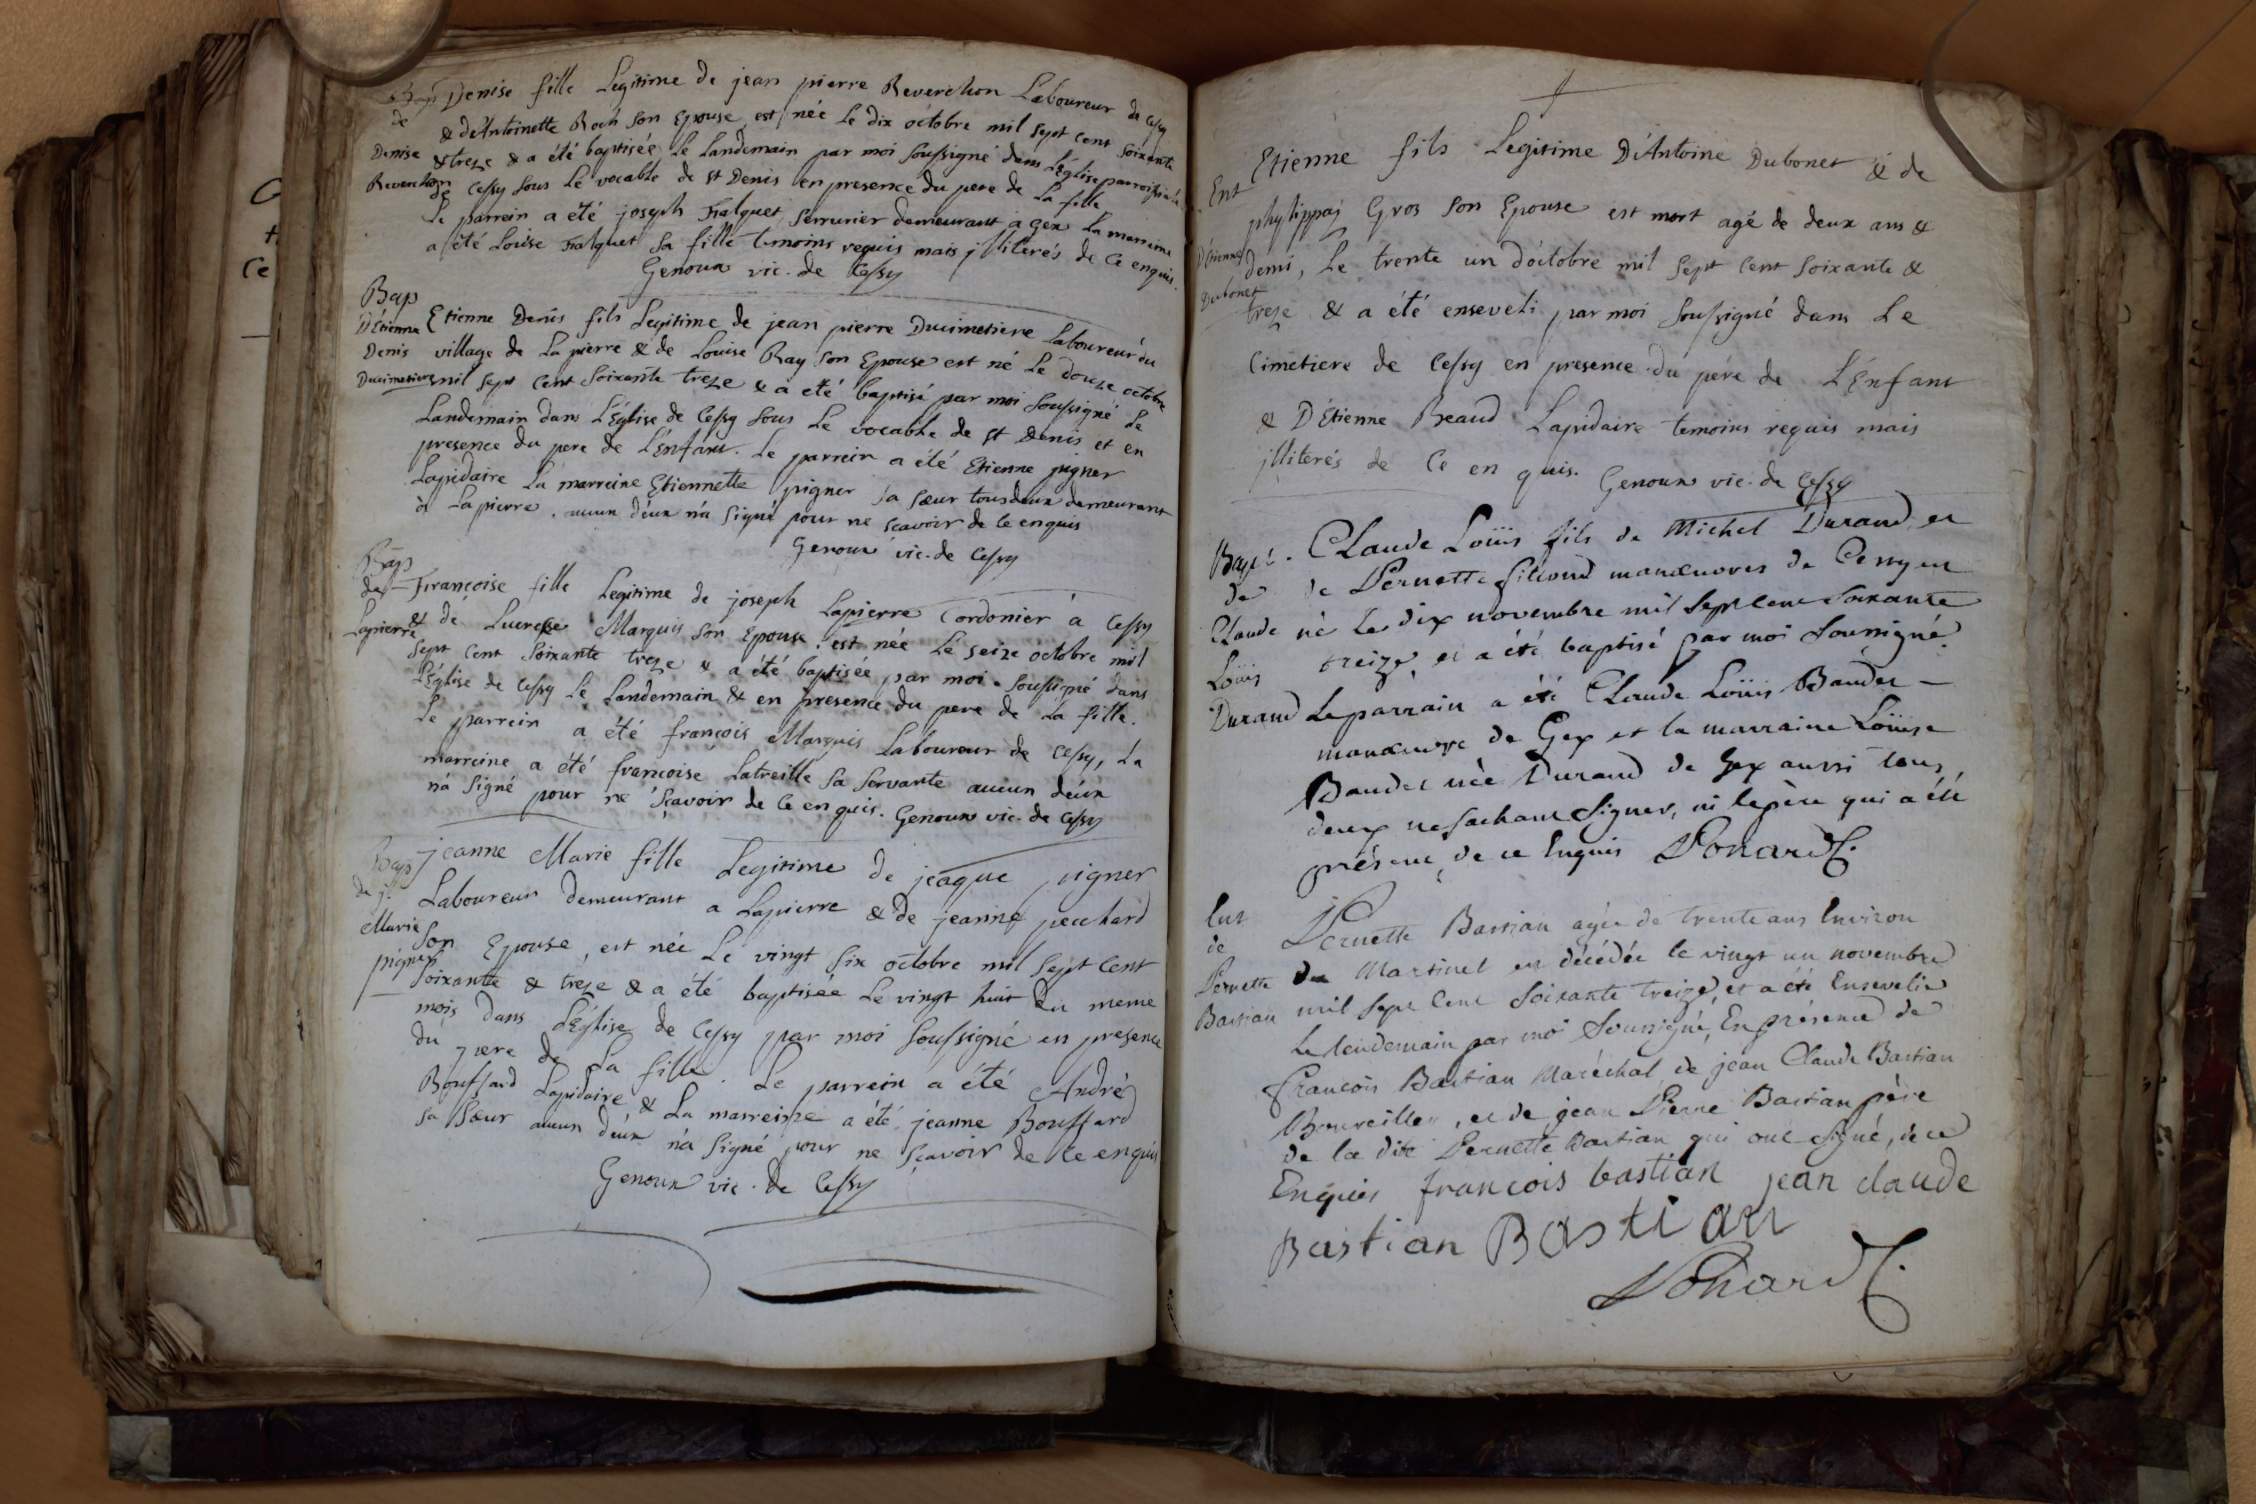 Bap Denise fille Legitime de jean pierre Reverchon Laboureur de Cessy
de & d'Antoinette Roch son Epouse est née le dix octobre mil sept cent soixante
Denise & treze & a été baptisée le Landemain par moi soussigné dans L'Eglise parroissiale
Reverchon de Cessy sous le vocable de st Denis en presence du pere de La fille
Le parrein a été joseph Falquet serrurier demeurant a gex La marreine
a été Louise Falquet sa fille temoins requis mais jlliterés de ce enquis.
Genoux vic. de Cessy
Bap
D'Etienne Etienne Denis fils Legitime de jean pierre Ducimetiere Laboureur du
Denis village de La pierre & de Louise Ray son Epouse est né le douze octobre
Ducimetiere mil sept cent soixante treze & a été baptisé par moi soussigné le
Landemain dans L'Eglise de Cessy sous le vocable de st Denis et en
presence du pere de L'Enfant. Le parrein a été Etienne pigner
Lapidaire La marreine Etiennette pigner sa sœur tousdeux demeurant
à Lapierre. aucun d'eux n'a signé pour ne scavoir de ce enquis
Genoux vic. de Cessy
Bap
de Françoise fille Legitime de joseph Lapierre Cordonier à Cessy
Lapierre & de Lucresse Marquis son Epouse est née le seize octobre mil
sept cent soixante treze & a été baptisée par moi soussigné dans
L'Eglise de Cessy le Landemain & en presence du pere de La fille.
Le parrein a été françois Marquis Laboureur de Cessy, La
marreine a été francoise Latreille sa servante aucun d'eux
n'a signé pour ne sçavoir de ce enquis. Genoux vic. de Cessy
Bap jeanne Marie fille Legitime de jeaque pigner
de j. Laboureur demeurant a Lapierre & de jeanne pecchard
Marie son Epouse, est née le vingt six octobre mil sept cent
pigner soixante & treze & a été baptisée le vingt huit du meme
mois dans L'Eglise de Cessy par moi soussigné en presence
du pere de La fille. Le parrein a été André
Bouffard Lapidaire & La marreine a été jeanne Bouffard
sa sœur aucun d'eux n'a signé pour ne sçavoir de ce enquis
Genoux vic. de Cessy
Ent Etienne fils Legitime D'Antoine Dubonet & de
phylippaz Gros son Epouse est mort agé de deux ans &
D'Etienne demi, le trente un d'octobre mil sept cent soixante &
Dubonet treze & a été enseveli par moi soussigné dans le
Cimetiere de Cessy en presence du pére de L'Enfant
& D'Etienne Beaud Lapidaire temoins requis mais
jlliterés de ce en quis. Genoux vic. de Cessy
Bapt. Claude Loüis fils de Michel Durand et
de de Pernette Gilloud manœuvres de Cessy est
Claude né le dix novembre mil sept cent soixante
Loüis treize et a été baptisé par moi soussigné.
Durand le parrain a été Claude Loüis Baudet
manœuvre de Gex et la marraine Loüise
Baudet née Durand de Gex aussi tous
deux ne sachant signer, ni le père qui a été
présent, de ce Enquis Ponard C.
Ent Pernette Bastian agée de trente ans Environ
de de Martinet est décédée le vingt un novembre
Pernette mil sept cent soixante treize, et a été Ensevelie
Bastian le lendemain par moi soussigné, En présence de
François Bastian Maréchal, de jean Claude Bastian
, et de jean Pierre Bastian père
de la dite Pernette Bastian qui ont signé, de ce
Enquis françois bastian jean claude
Bastian Bastian
Ponard C.